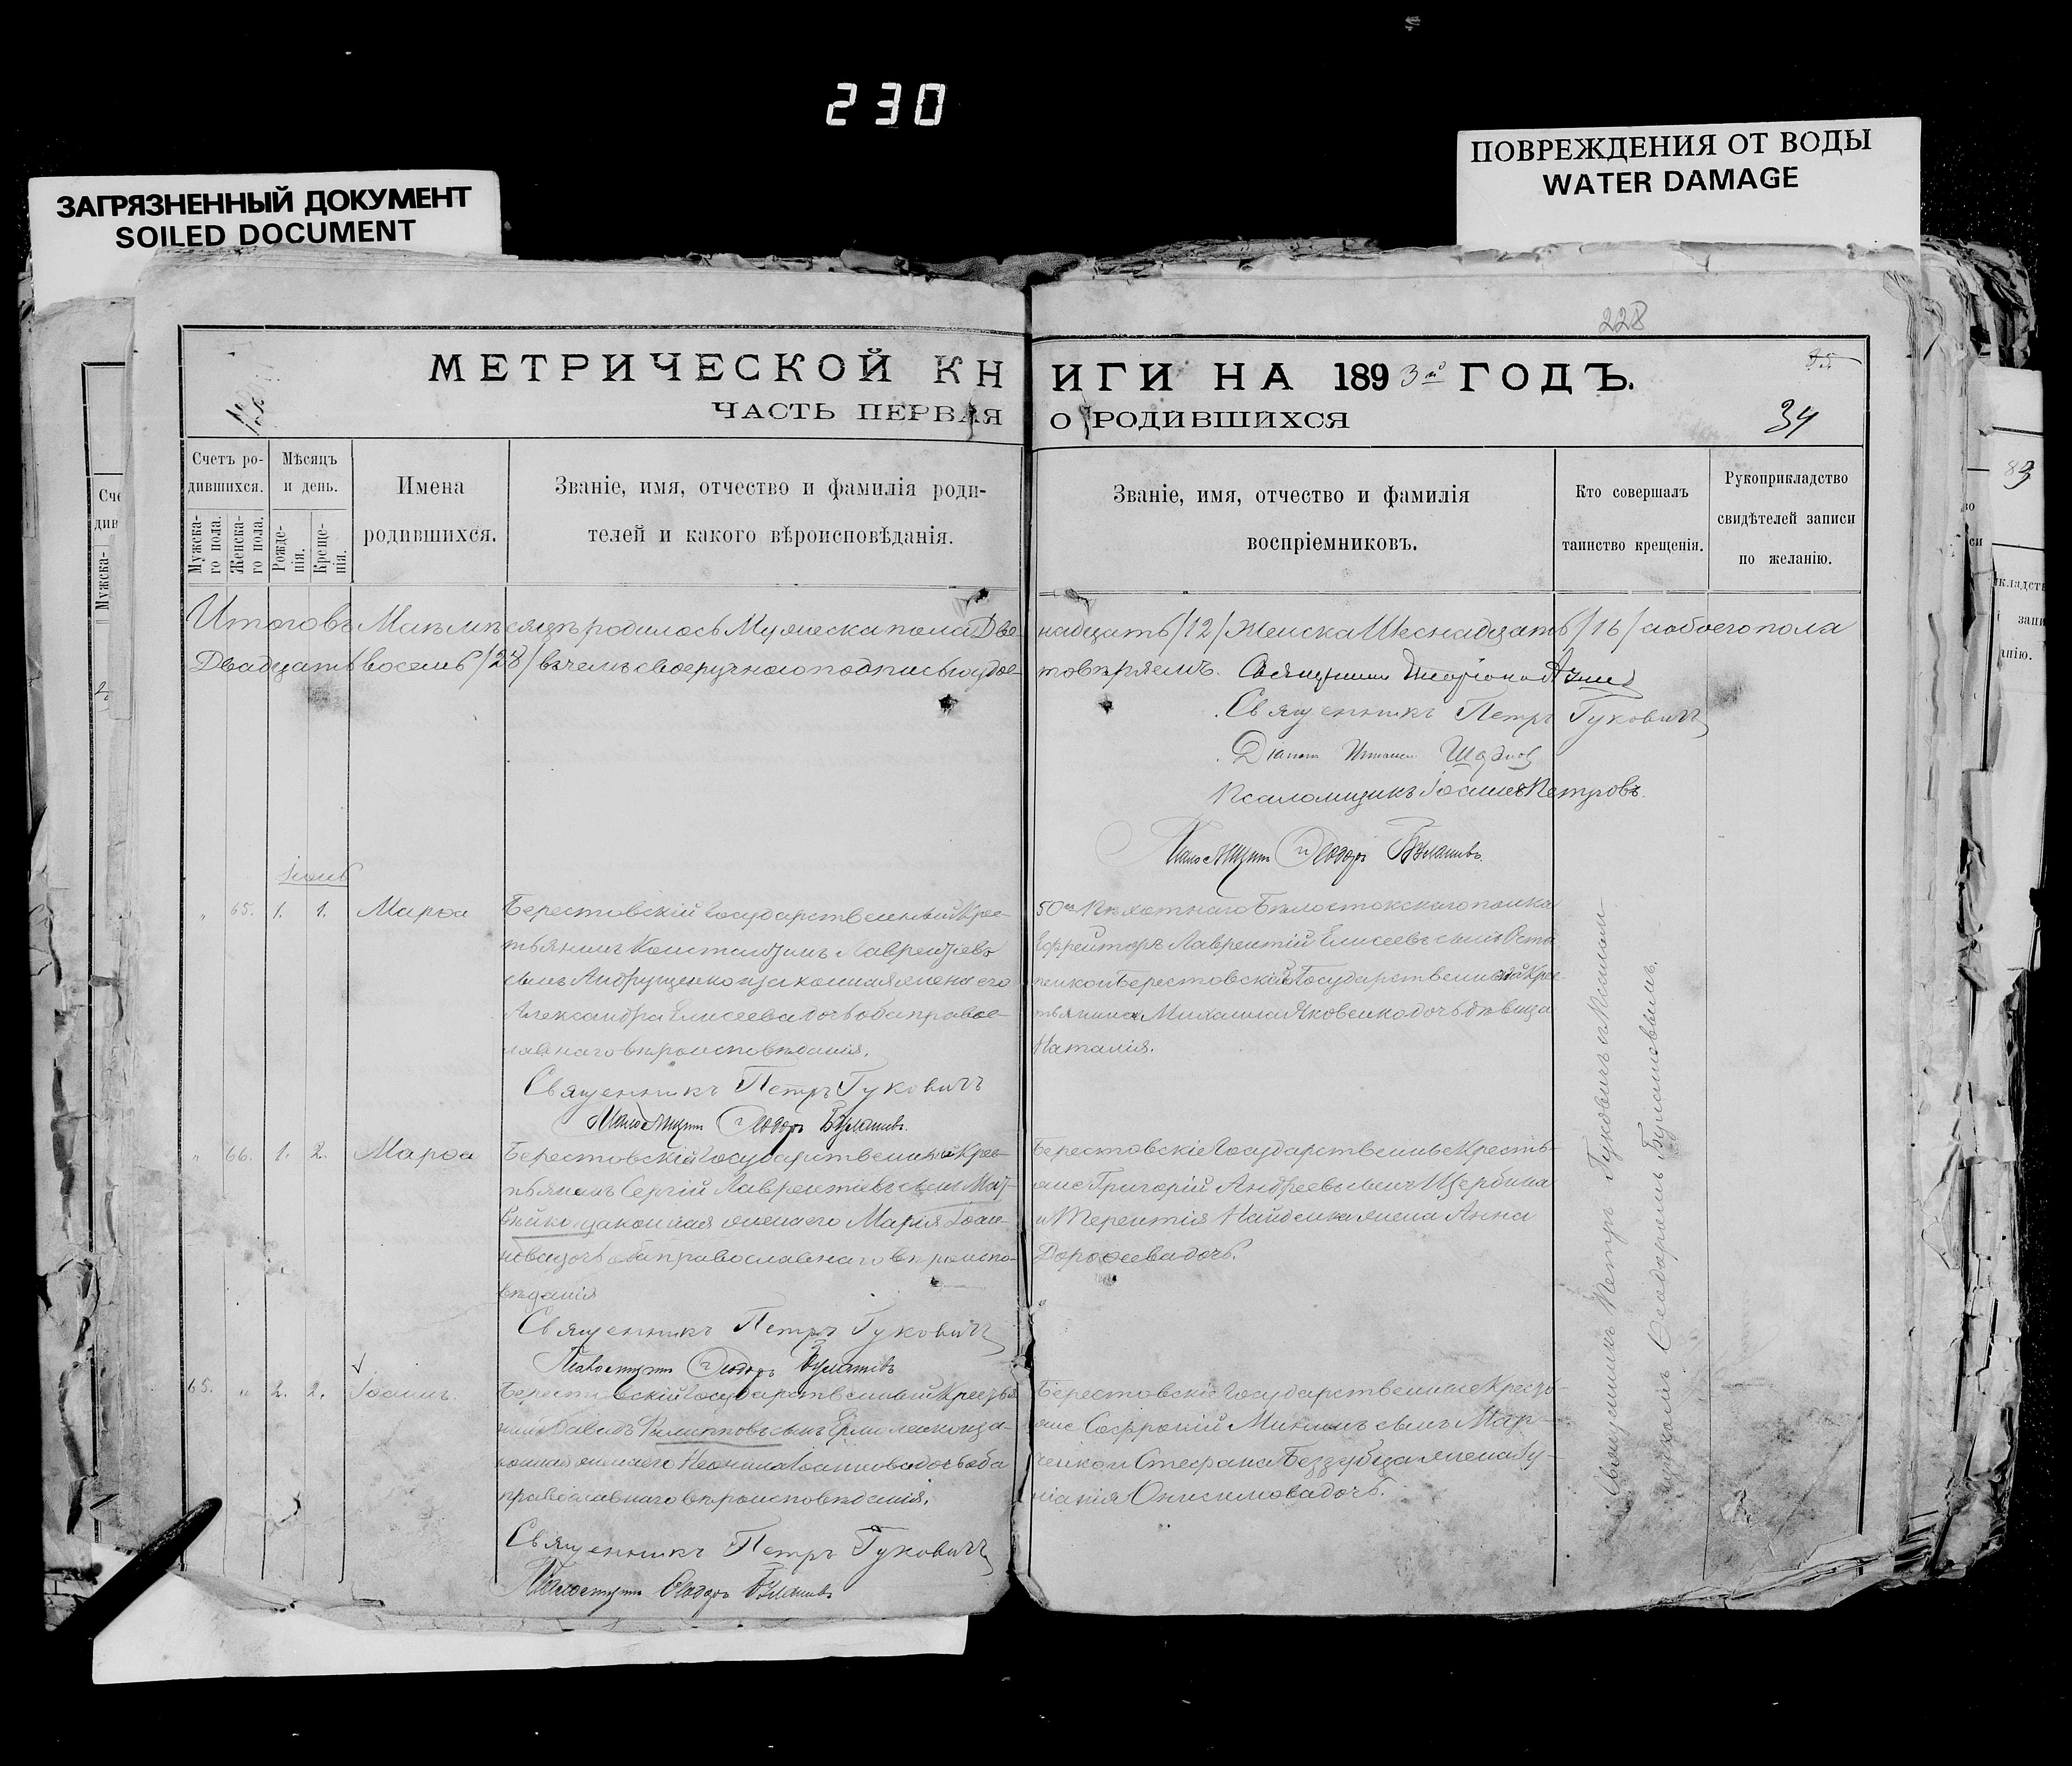 230
ЗАГРЯЗНЕННЫЙ ДОКУМЕНТ
SOILED DOCUMENT
ПОВРЕЖДЕНИЯ ОТ ВОДЫ
WATER DAMAGE
228
МЕТРИЧЕСКОЙ КНИГИ НА 1893 ГОДЪ.
ЧАСТЬ ПЕРВАЯ О РОДИВШИХСЯ
34
Счетъ ро-
дившихся.
Мужска-
го пола.
Женска-
го пола.
Мѣсяцъ
и день.
Рожде-
нія.
Креще-
нія.
Имена
родившихся.
Званіе, имя, отчество и фамилія роди-
телей и какого вѣроисповѣданія.
Званіе, имя, отчество и фамилія
воспріемниковъ.
Кто совершалъ
таинство крещенія.
Рукоприкладство
свидѣтелей записи
по желанію.
Итого въ Маѣ мѣсяцѣ родилось Мужеска пола Две-
надцать /12/ Женска Шеснадцать /16/ а обоего пола
Двадцать восемь /28/ въ чемъ своеручною подписью удос-
товѣряемъ. Священникъ
Священникъ Петръ Гукович
Діаконъ
Псаломщикъ Іоаннъ Петровъ
Псаломщикъ Ѳеодоръ Булатовъ
Іюнь
" 65. 1. 1. Марѳа
Берестовскій Государственный Крес-
тьянинъ Константинъ Лаврентіевъ
сынъ Андрущенко и законная жена его
Александра Елисеева дочь оба правос-
лавнаго вѣроисповѣданія.
Священникъ Петръ Гукович
Псаломщикъ Ѳеодоръ Булатовъ
50го Пѣхотнаго Бѣлостокскаго полка
Ефрейторъ Лаврентій Елисеевъ сынъ Оста
пенко и Берестовскаго Государственнаго Крес-
тьянина Михаила Яковенко дочь дѣвица
Наталія.
" 66. 1. 2. Марѳа
Берестовскій Государственный Крес-
тьянинъ Сергій Лаврентіевъ сынъ Мат-
вѣйко и законная жена его Марія Іоан-
нова дочь оба православнаго вѣроиспо-
вѣданія
Священникъ Петръ Гукович
Псаломщикъ Ѳеодоръ Булатовъ
Берестовскіе Государственные Кресть-
яне Григорій Андреевъ сынъ Щербина
и Терентія Найденка жена Анна
Дороѳеева дочь.
65. " 2. 2. Іоаннъ.
Берестовскій Государственный Крестья
нинъ Давидъ Филипповъ сынъ Ермоленко и за-
конная жена его Неонила Іоаннова дочь оба
православнаго вѣроисповѣданія.
Священникъ Петръ Гукович
Псаломщикъ Ѳеодоръ Булатовъ
Берестовскіе Государственные Кресть-
яне Софроній Мининъ сынъ Мар-
ченко и Стефана Беззубца жена Іу-
ліанія Онисимова дочь.
Священникъ Петръ Гуковичъ и Псалом-
щикомъ Ѳеодоромъ Булатовымъ.